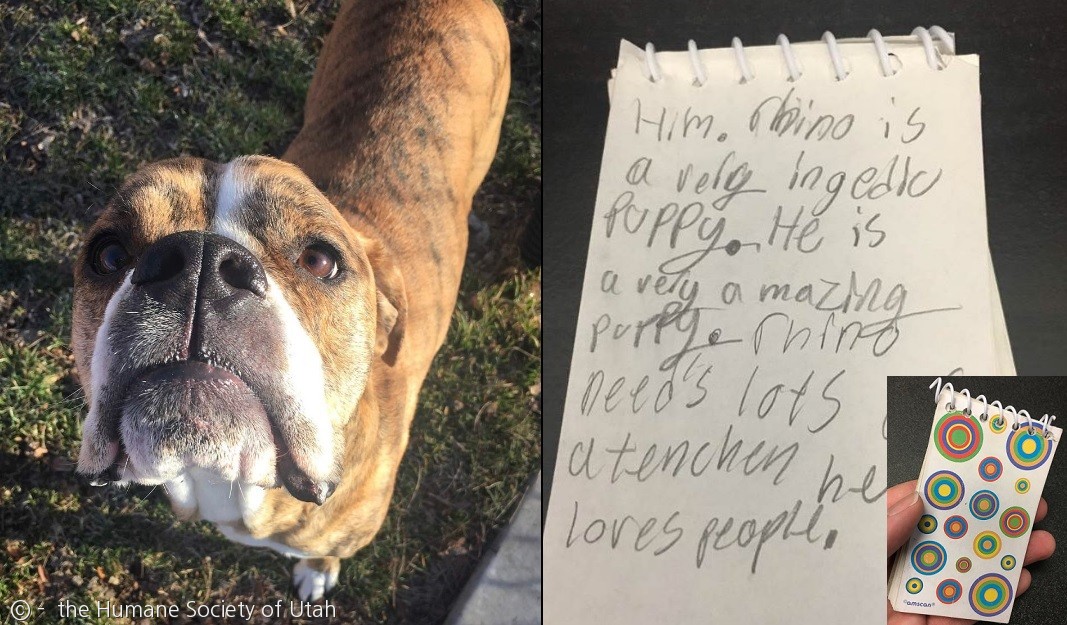 Him. Rhino is
a very ingedic
Puppy. He is
a very amazing
puppy. Rhino
needs lots
atenchen he
loves people.
amscan
© - the Humane Society of Utah